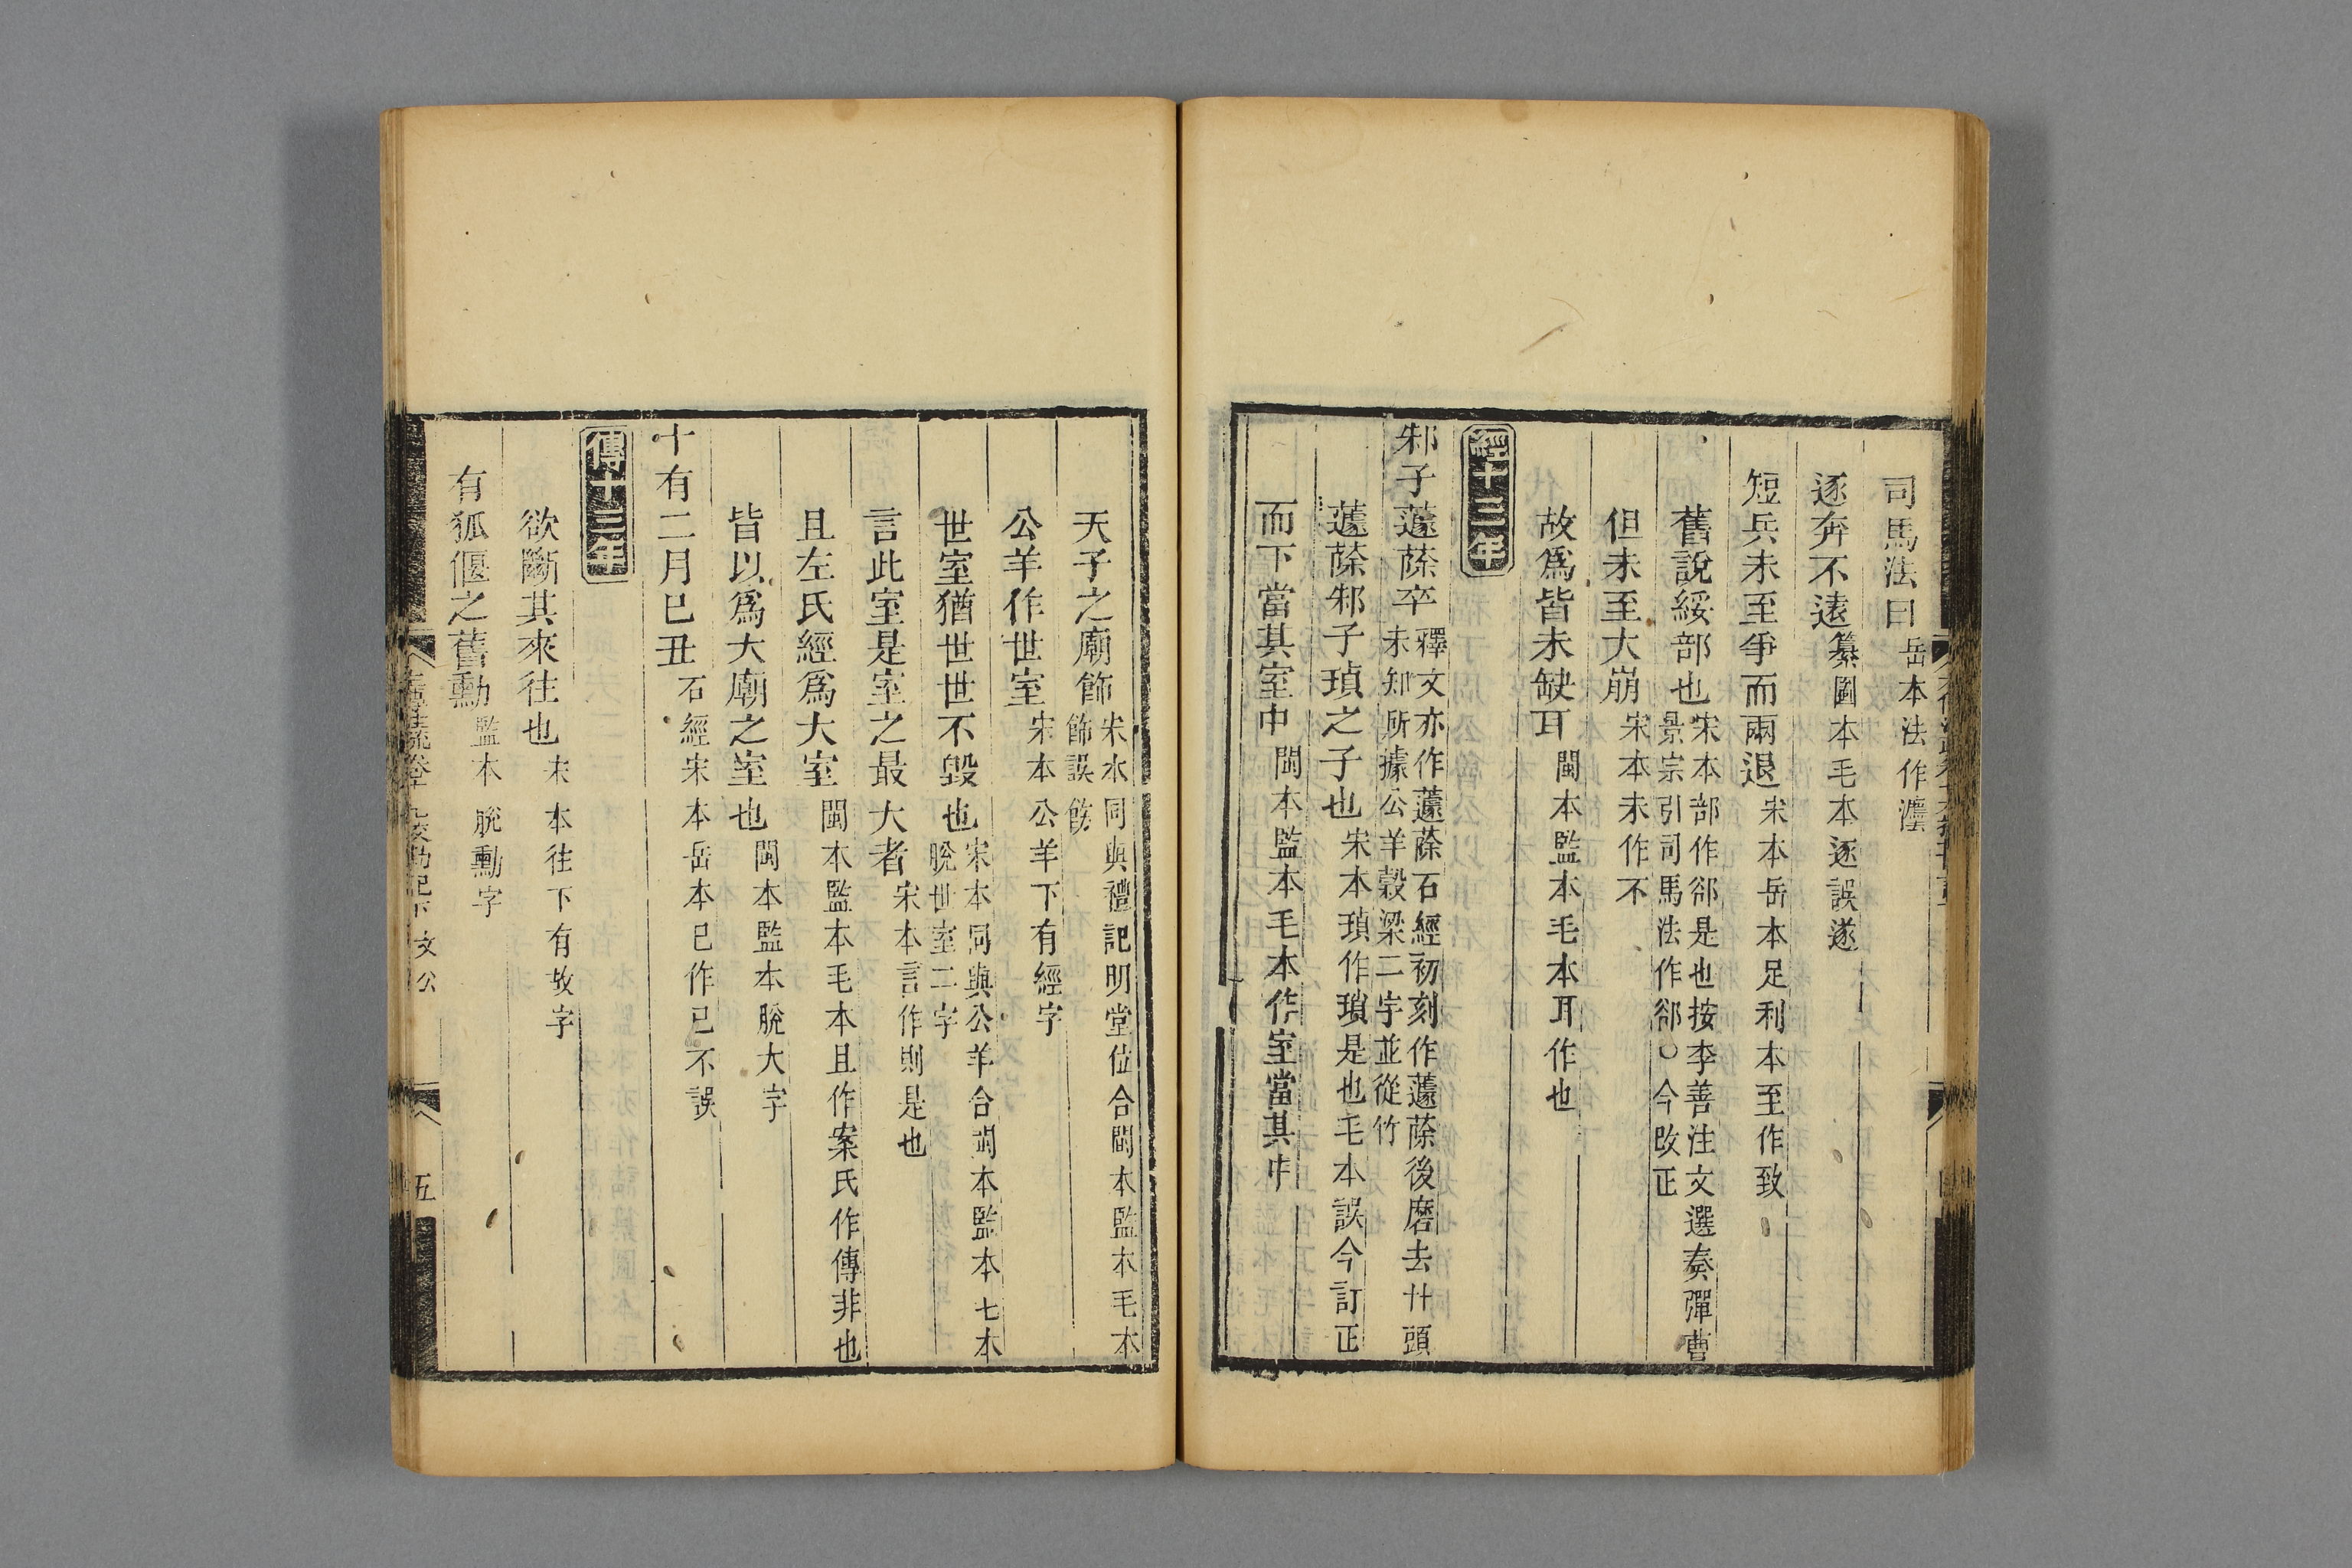 司馬法曰岳本法作灋
逐奔不遠纂圖本毛本逐誤遂
短兵未至爭而兩退宋本岳本足利本至作致
舊說綏部也宋本部作郤是也按李善注文選奏彈曹景宗引司馬法作郤○今改正
但未至大崩宋本未作不
故爲皆未缺耳閩本監本毛本耳作也
經十三年
邾子蘧蒢卒釋文亦作蘧蒢石經初刻作蘧蒢後磨去艹頭未知所據公羊穀梁二字並從竹
蘧蒢邾子瑣之子也宋本瑣作瑣是也毛本誤今訂正
而下當其室中閩本監本毛本作室當其中
天子之廟飾宋本同與禮記明堂位合閩本監本毛本飾誤餙
公羊作世室宋本公羊下有經字
世室猶世世不毀也宋本同與公羊合閩本監本毛本脫世室二字
言此室是室之最大者宋本言作則是也
且左氏經爲大室閩本監本毛本且作案氏作傳非也
皆以爲大廟之室也閩本監本脫大字
十有二月已丑石經宋本岳本已作己不誤
傳十三年
欲斷其來往也宋本往下有故字
有狐偃之舊勳監本脫勳字
校勘記下 文公 五